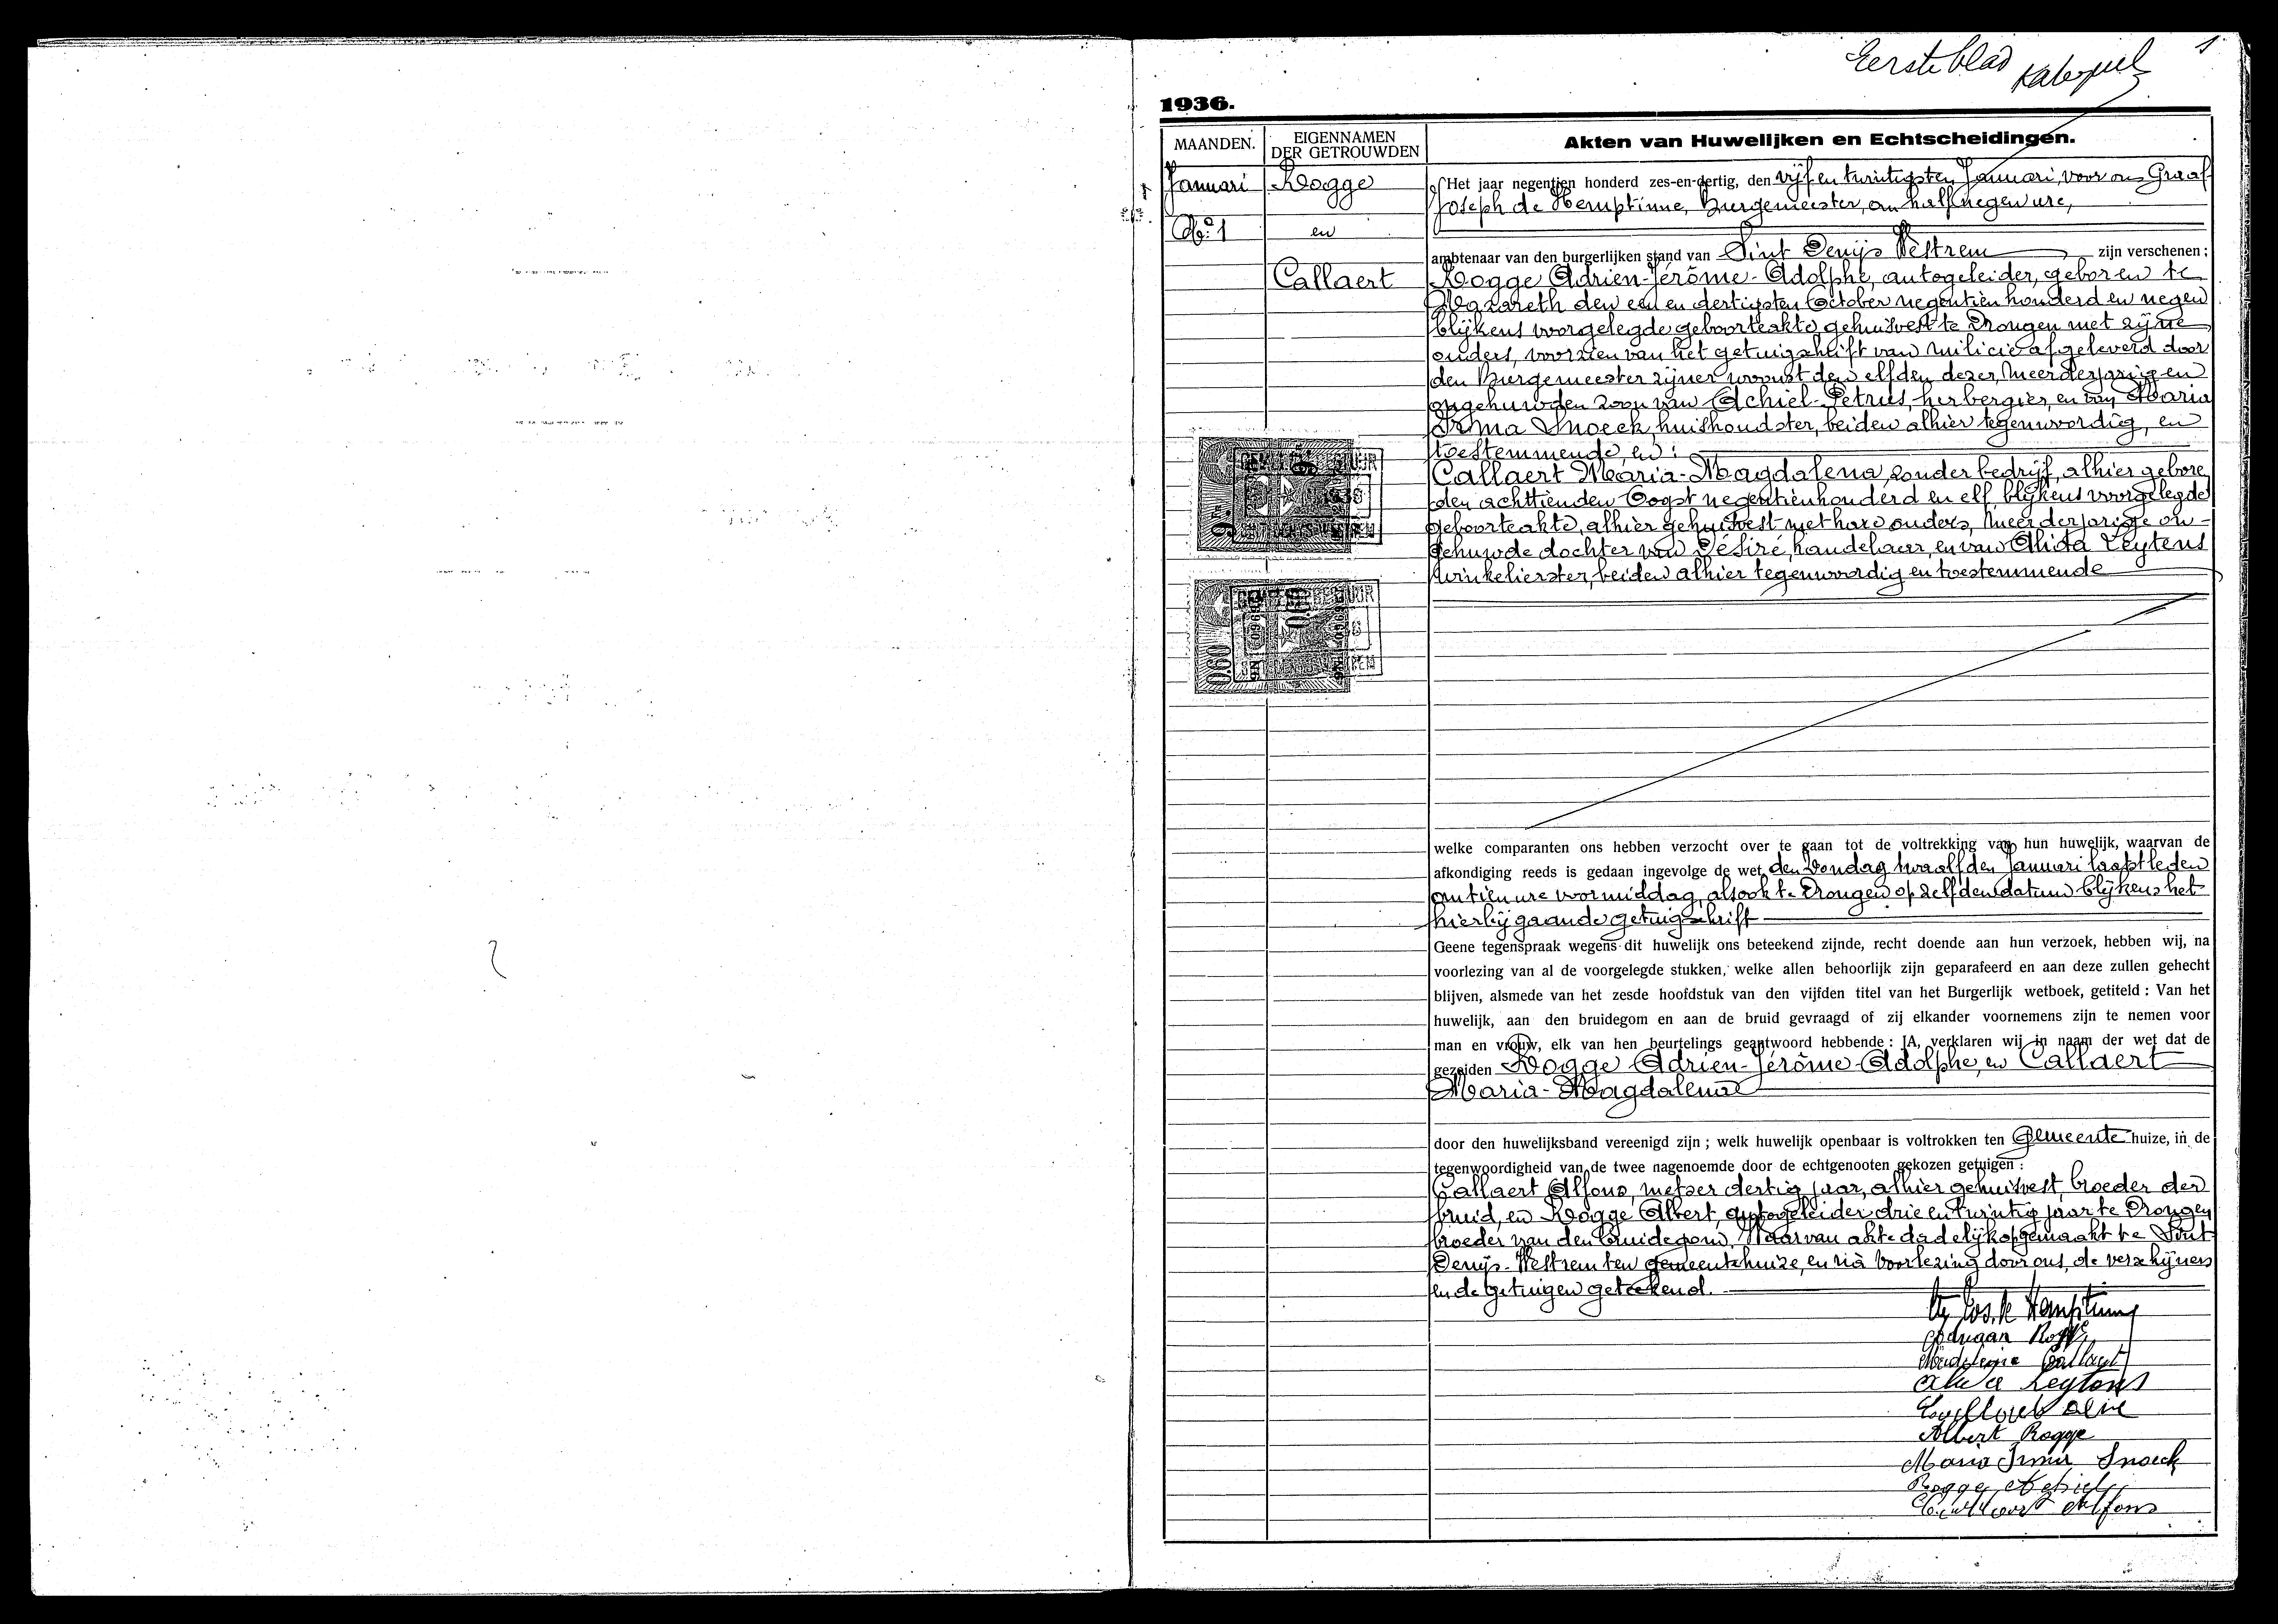 Eerste blad
1
1936.
MAANDEN.
EIGENNAMEN
DER GETROUWDEN
Akten van Huwelijken en Echtscheidingen.
Januari
Rogge
Het jaar negentien honderd zes-en-dertig, den vijf en twintigsten Januari, voor ons Graaf
Joseph de Hemptinne, Burgemeester, om half negen ure,
No. 1
en
ambtenaar van den burgerlijken stand van Sint Denijs Westrem zijn verschenen :
Callaert
Rogge Adrien-Jérôme-Adolphe, autogeleider, geboren te
Nazareth den een en dertigsten October negentien honderd en negen
blijkens voorgelegde geboorteakte, gehuisvest te Drongen met zijne
ouders, voorzien van het getuigschrift van milicie afgeleverd door
den Burgemeester zijner woonst den elfden dezer, meerderjarigen
ongehuwden zoon van Achiel-Petrus, herbergier, en van Maria
Irma Snoeck, huishoudster, beiden alhier tegenwoordig, en
toestemmende, en :
Callaert Maria-Magdalena, zonder bedrijf, alhier gebore
den achttienden Oogst negentienhonderd en elf, blijkens voorgelegde
geboorteakte, alhier gehuisvest met hare ouders, meerderjarige on-
gehuwde dochter van Désiré, handelaar, en van Alida Leytens
winkelierster, beiden alhier tegenwoordig en toestemmende
0.60
welke comparanten ons hebben verzocht over te gaan tot de voltrekking van hun huwelijk, waarvan de
afkondiging reeds is gedaan ingevolge de wet den Zondag twaalfden Januari laatstleden
om tien ure voormiddag, alsook te Drongen op zelfden datum blijkens het
hierbijgaande getuigschrift
Geene tegenspraak wegens dit huwelijk ons beteekend zijnde, recht doende aan hun verzoek, hebben wij, na
voorlezing van al de voorgelegde stukken, welke allen behoorlijk zijn geparafeerd en aan deze zullen gehecht
blijven, alsmede van het zesde hoofdstuk van den vijfden titel van het Burgerlijk wetboek, getiteld : Van het
huwelijk, aan den bruidegom en aan de bruid gevraagd of zij elkander voornemens zijn te nemen voor
man en vrouw, elk van hen beurtelings geantwoord hebbende : JA, verklaren wij in naam der wet dat de
gezeiden Rogge Adrien-Jérôme-Adolphe, en Callaert
Maria-Magdalena
door den huwelijksband vereenigd zijn ; welk huwelijk openbaar is voltrokken ten Gemeente huize, in de
tegenwoordigheid van de twee nagenoemde door de echtgenooten gekozen getuigen :
Callaert Alfons, metser dertig jaar, alhier gehuisvest, broeder der
bruid, en Rogge Albert, autogeleider drie en twintig jaar te Drongen
broeder van den bruidegom. Waarvan akte dadelijk opgemaakt te Sint
Denijs-Westrem ten gemeentehuize, en na voorlezing door ons, de verschijners
en de getuigen geteekend.
Jos. de Hemptinne
Adriaan Rogge
Madeleine Callaert
Alida Leytens
Albert Rogge
Maria Irma Snoeck
Rogge Achiel
Callaert Alfons